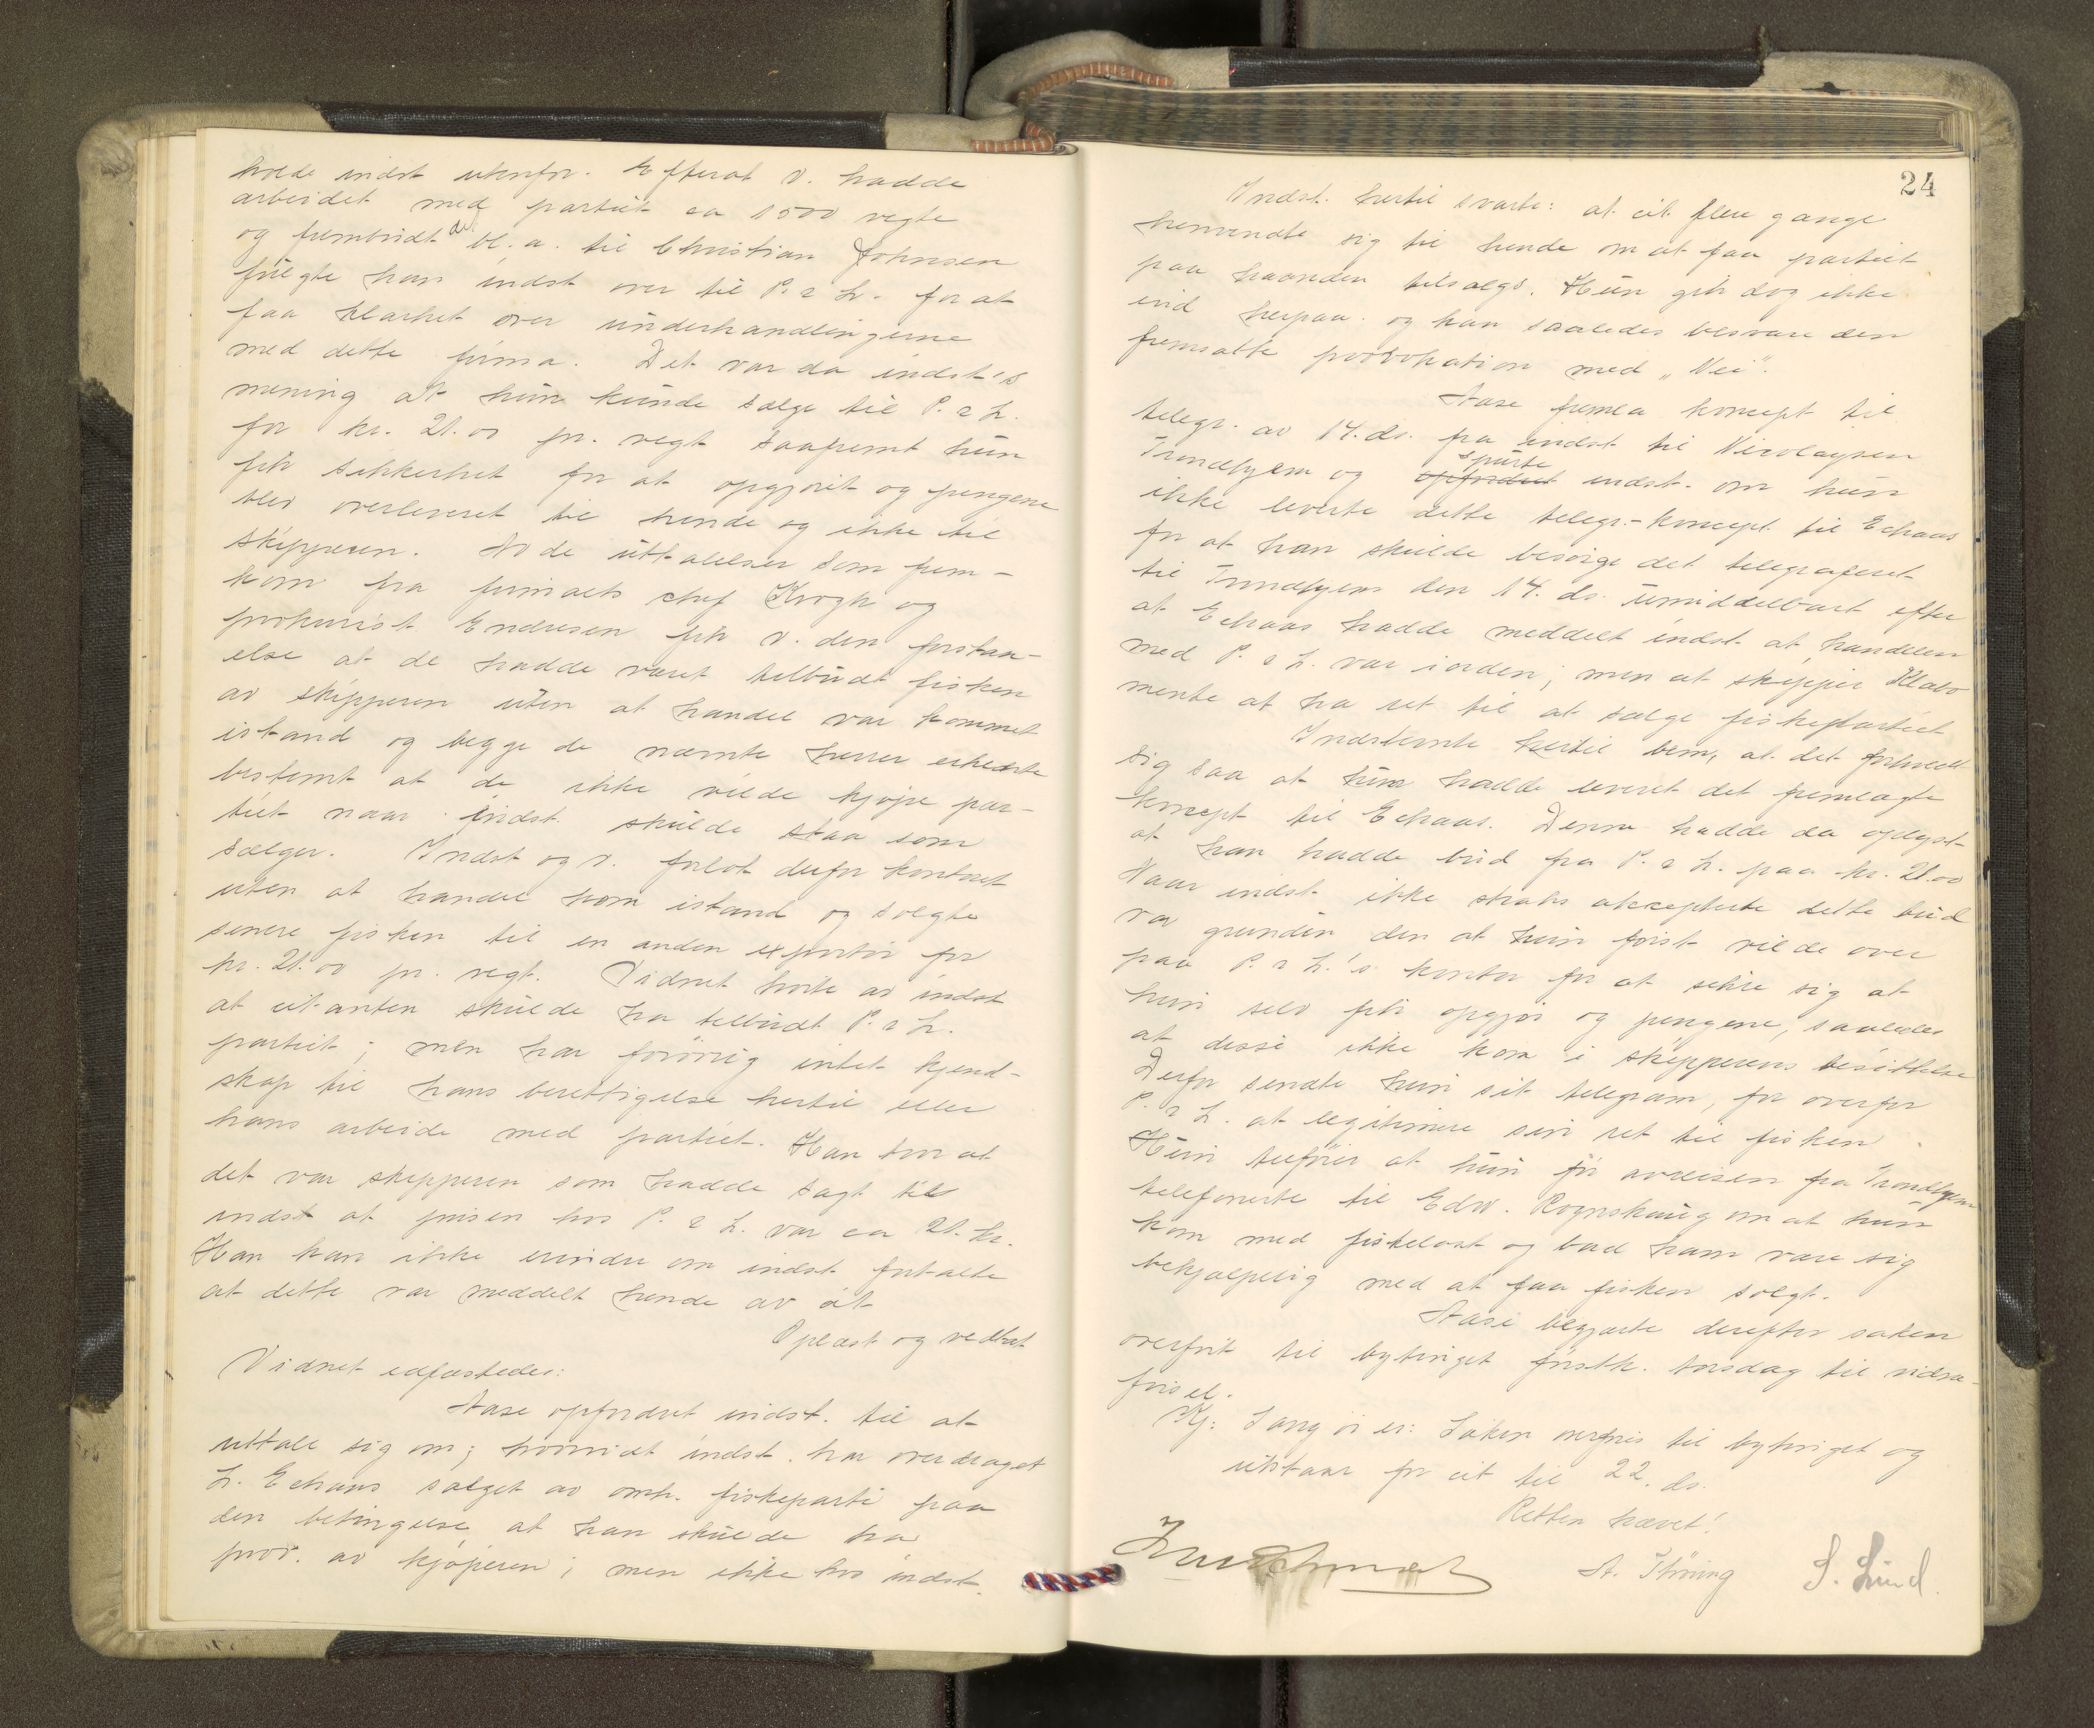 holde indst utenfor. Efterat v. hadde
arbeidet med partiet ca 1500 vegte
og frembudt det bl. a. til Christian Johnsen
fulgte han indst over til P. & L. for at
faa klarhet over underhandlingerne
med dette firma. Det var da indst's
mening at hun kunde sælge til P. & L.
for kr. 21.00 pr. vegt saafremt hun
fik sikkerhet for at opgjøret og pengene
blev overleveret til hende og ikke til
skipperen. Av de uttalelser som frem-
kom fra firmaets chef Krogh og
prokurist Endresen fik v. den forstaa-
else at de hadde været tilbudt fisken
av skipperen uten at handel var kommet
istand og begge de nævnte herrer erklærte
bestemt at de ikke vilde kjøpe par-
tiet naar indst. skulde staa som
sælger. Indst og v. forlot derfor kontoret
uten at handel kom istand og solgte
senere fisken til en anden exportør for
kr. 21.00 pr. vegt. Vidnet hørte av indst
at citanten skulde ha tilbudt P. & L.
partiet; men har forøvrig intet kjend-
skap til hans berettigelse hertil eller
hans arbeide med partiet. Han tror at
det var skipperen som hadde sagt til
indst at prisen hos P. & L. var ca 21. kr.
Han kan ikke erindre om indst fortalte
at dette var meddelt hende av cit
Oplæst og vedtat
Vidnet edfæstedes:
Aase opfordret indst. til at
uttale sig om; hvorvidt indst. har overdraget
L. Echaas salget av omh. fiskeparti paa
den betingelse at han skulde ha
prov. av kjøperen; men ikke hos indst.
24
Indst. hertil svarte: at cit. flere gange
henvendte sig til hende om at faa partiet
paa haanden tilsalgs. Hun gik dog ikke
ind herpaa og kan saaledes besvare den
fremsatte provokation med „Nei“.
Aase fremla koncept til
telegr. av 14. ds. fra indst til Nicolaysen
Trondhjem og opfordret spurte indst. om hun
ikke leverte dette telegr.-koncept til Echaas
for at han skulde besørge det telegraferet
til Trondhjem den 14. ds. umiddelbart efter
at Echaas hadde meddelt indst at handelen
med P. & L. var iorden; men at skipper Klabo
mente at ha ret til at sælge fiskepartiet
Indstevnte hertil bem, at det forholdt
sig saa at hun hadde leveret det fremlagte
koncept til Echaas. Denne hadde da oplyst
at han hadde bud fra P. & L. paa kr. 21.00
Naar indst ikke straks akcepterte dette bud
var grunden den at hun først vilde over
paa P. & L.'s kontor for at sikre sig at
hun selv fik opgjør og pengene, saaledes
at disse ikke kom i skipperens besittelse
Derfor sendte hun sit telegram, for overfor
P. & L. at legitimere sin ret til fisken.
Hun tilføier at hun før avreisen fra Trondhjem
telefonerte til Edv. Rognskaug om at hun
kom med fiskelast og bad ham være sig
behjælpelig med at faa fisken solgt.
Aase begjærte derefter saken
overført til bytinget førstk. torsdag til vidne-
førsel.
Kj: Saken overføres til bytinget og
utstaar for cit til 22. ds.
Retten hævet!
A. Thøring S. Lund.